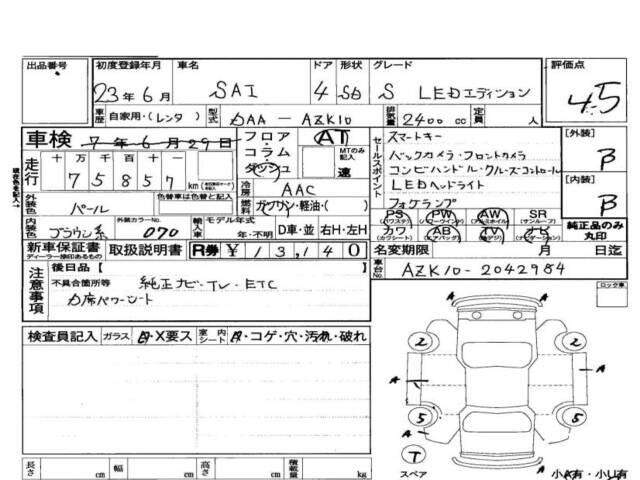 出品番号 初度登録年月 車名 ドア 形状 グレード 評価点
23年6月 SAI 4 SD S LEDエディション 4.5
車歴 自家用・(レンタ) 型式 DAA-AZK10 排気量 2400cc 定員 人
車検 7年6月29日 フロア・コラム・ダッシュ AT MTのみ記入 速
走行 十万 万 千 百 十
7 5 8 5 7 km
冷房 AAC
外装色 パール 色替車は色替と記入 燃料 ガソリン・軽油・( )
内装色 ブラウン系 外装カラーNo. 070 輸入車 モデル年式 年・不明 D車・並 右H・左H
セールスポイント
スマートキー
バックカメラ・フロントカメラ
コンビハンドル・クルーズコントロール
LEDヘッドライト
フォグランプ
[外装] B
[内装] B
PS (パワステ) PW (パワーウインド) AW (アルミホイル) SR (サンルーフ)
カワ (カワシート) AB (エアバック) TV (地デジ) ナビ
純正品のみ丸印
新車保証書 ディーラー捺印あるもの 取扱説明書 R券 ¥13,140 名変期限 月 日迄
車台No. AZK10-2042984
注意事項 後日品【 】
不具合箇所等 純正ナビ・TV・ETC
D席パワーシート
ロック車
検査員記入 ガラス A・X要ス 室内シート A・コゲ・穴・汚れ・破れ
A
2 2
A A
5 5
A A
T
スペア
A
長さ cm 幅 cm 高さ cm 積載量 kg
小A有・小U有